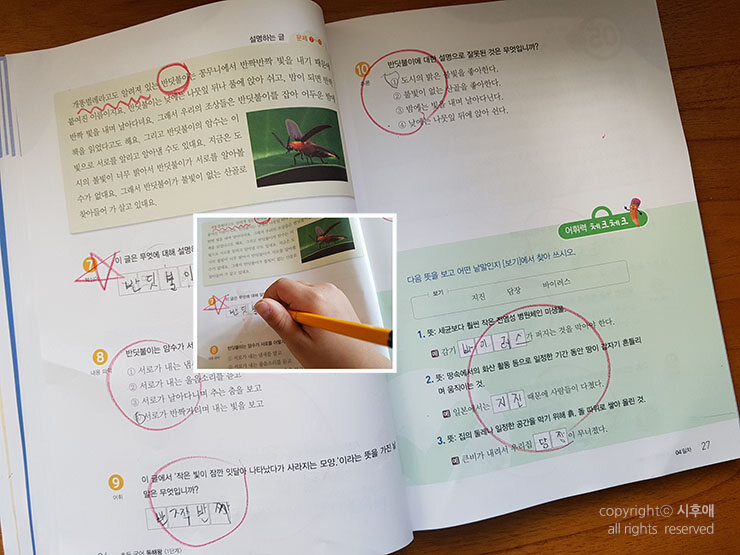 설명하는 글
문제 7~10
개똥벌레라고도 알려져 있는 반딧불이는 꽁무니에서 반짝반짝 빛을 내기 때문에
붙여진 이름이지요. 반딧불이는 낮에는 나뭇잎 뒤나 돌에 앉아 쉬고, 밤이 되면 반짝
반짝 빛을 내며 날아다녀요. 그래서 우리의 조상들은 반딧불이를 잡아 어두운 밤에
책을 읽었다고도 해요. 그리고 반딧불이의 암수는 이
빛으로 서로를 알리고 알아낼 수도 있대요. 지금은 도
시의 불빛이 너무 밝아서 반딧불이가 서로를 알아볼
수가 없대요. 그래서 반딧불이가 불빛이 없는 산골로
찾아들어 가 살고 있대요.
7
이 글은 무엇에 대해 설명하
반딧불이
8
내용 이해
반딧불이는 암수가 서
① 서로가 내는 냄
② 서로가 내는 울음소리를 듣고
③ 서로가 날아다니며 추는 춤을 보고
④ 서로가 반짝거리며 내는 빛을 보고
9
어휘
이 글에서 '작은 빛이 잠깐 잇달아 나타났다가 사라지는 모양.'이라는 뜻을 가진 낱
말은 무엇입니까?
반짝반짝
초등 국어 독해왕 (1단계)
10
추론
반딧불이에 대한 설명으로 잘못된 것은 무엇입니까?
① 도시의 밝은 불빛을 좋아한다.
② 불빛이 없는 산골을 좋아한다.
③ 밤에는 빛을 내며 날아다닌다.
④ 낮에는 나뭇잎 뒤에 앉아 쉰다.
어휘력 체크체크
다음 뜻을 보고 어떤 낱말인지 [보기]에서 찾아 쓰시오.
보기
지진 담장 바이러스
1. 뜻: 세균보다 훨씬 작은 전염성 병원체인 미생물.
예 감기 바이러스가 퍼지는 것을 막아야 한다.
2. 뜻: 땅속에서의 화산 활동 등으로 일정한 기간 동안 땅이 갑자기 흔들리
며 움직이는 것.
예 일본에서는 지진 때문에 사람들이 다쳤다.
3. 뜻: 집의 둘레나 일정한 공간을 막기 위해 흙, 돌 따위로 쌓아 올린 것.
예 큰비가 내려서 우리집 담장이 무너졌다.
04일차 27
copyrightⓒ 시후애
all rights reserved